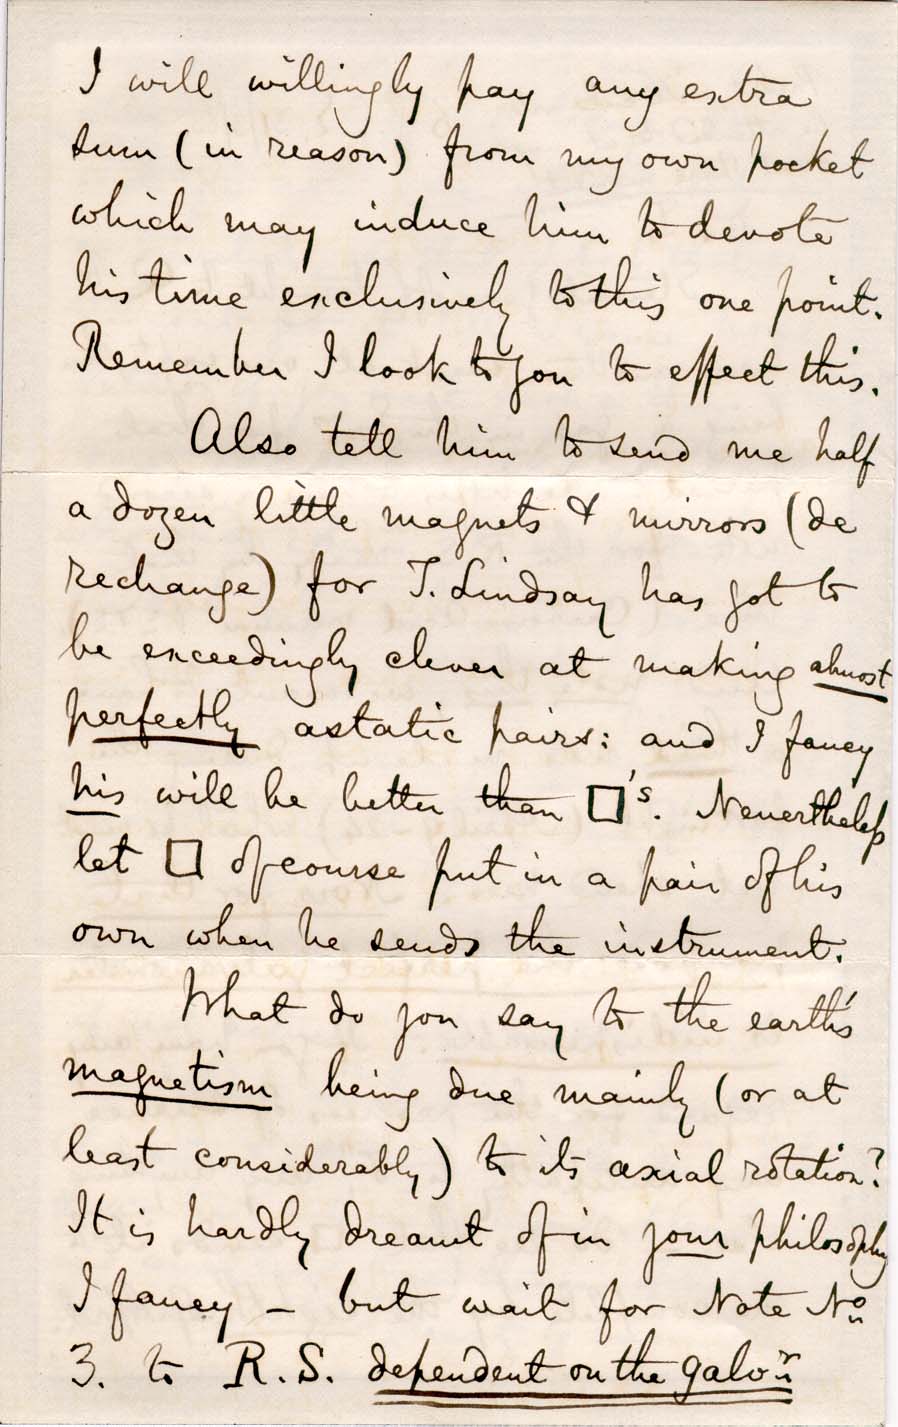 I will willingly pay any extra
sum (in reason) from my own pocket
which may induce him to devote
his time exclusively to this one point.
Remember I look to you to effect this.
Also tell him to send me half
a dozen little magnets & mirrors (de
rechange) for T. Lindsay has got to
be exceedingly clever at making almost
perfectly astatic pairs: and I fancy
his will be better than □'s. Nevertheless
let □ of course put in a pair of his
own when he sends the instrument.
What do you say to the earth's
magnetism being due mainly (or at
least considerably) to its axial rotation?
It is hardly dreamt of in your philosophy
I fancy – but wait for Note No
3. to R.S. dependent on the galvr